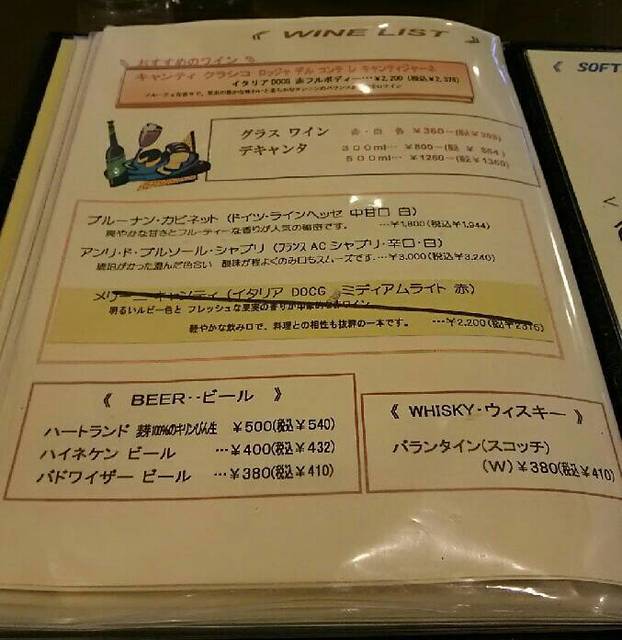 《 WINE LIST 》
おすすめのワイン
キャンティ クラシコ ロッジャ デル コンテ レ キャンティジャーネ
イタリアDOCG 赤フルボディー…¥2,200 (税込¥2,376)
グラス ワイン 赤・白 各 ¥360―(税¥389)
デキャンタ 300ml… ¥800―(税 ¥ 864)
500ml… ¥1260―(税¥1360)
ブルーナン・カビネット (ドイツ・ラインヘッセ 中甘口 白)
爽やかな甘さとフルーティーな香りが人気の秘密です。 …¥1,800(税込¥1,944)
アンリ・ド・ブルソール・シャブリ (フランス AC シャブリ・辛口・白)
琥珀がかった澄んだ色合い 酸味が程よくのみ口もスムーズです…¥3,000(税込¥3,240)
メリーニ キャンティ (イタリア DOCG ミディアムライト 赤)
明るいルビー色と フレッシュな果実の香りが印象的な赤ワイン
軽やかな飲み口で、料理との相性も抜群の一本です。 …¥2,200(税¥2376)
《 BEER‥ビール 》
ハートランド 麦芽100%のキリンびん生 ¥500(税込¥540)
ハイネケン ビール …¥400(税込¥432)
バドワイザー ビール …¥380(税込¥410)
《 WHISKY・ウィスキー 》
バランタイン(スコッチ)
(W)¥380(税込¥410)
《 SOFT
<